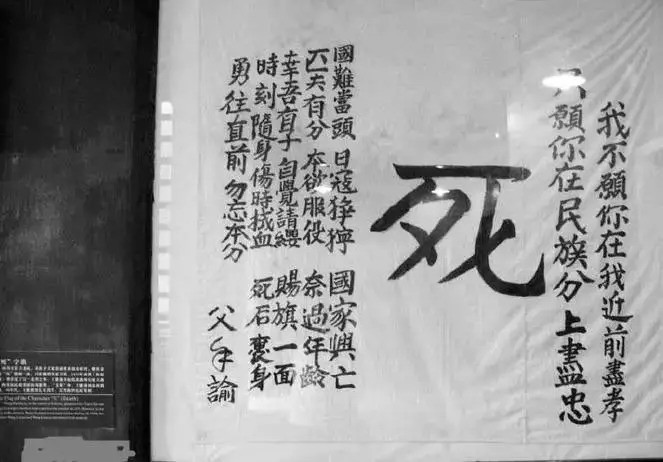 我不願你在我近前盡孝
只願你在民族分上盡忠
死
國難當頭 日寇猙獰 國家興亡
匹夫有分 本欲服役 奈過年齡
幸吾有子 自覺請纓 賜旗一面
時刻隨身 傷時拭血 死后裹身
勇往直前 勿忘本分
父手諭
死”字旗
Flag of the Character "Si" (Death)